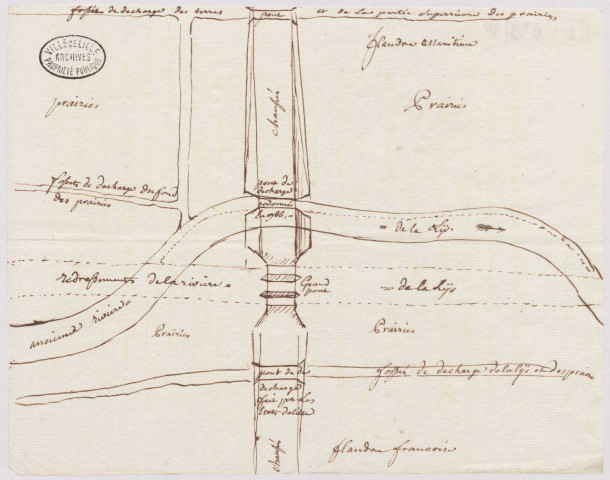 fossée de decharge des terres
pont
et de la partie superieure des prairies
VILLE DE LILLE
ARCHIVES
PROPRIÉTÉ PUBLIQUE
flandre Maritime
prairies
chaussée
Prairies
fossés de decharge du fond
des prairies
pont de
decharge
ordonné
en 1786
= de la Lÿs
redressement de la riviere =
Grand
pont
= de la Lÿs
ancienne riviere
Prairies
Prairies
pont de de
decharge
fait par les
Etats de lille
fossée de decharge de la lÿs et des prairies
chaussée
flandre francoise